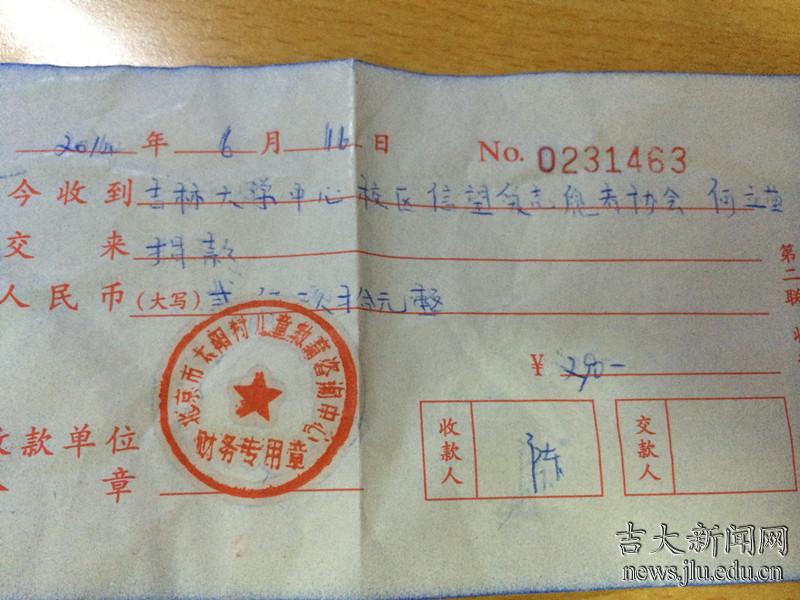 2014 年 6 月 16 日 No. 0231463
今收到 吉林大学中心校区信望爱志愿者协会 何立
交来 捐款
人民币(大写) 元整
¥ 290-
北京市太阳村儿童教育咨询中心
财务专用章
收款单位
章
收款人 陈
交款人
第二联 收
吉大新闻网
news.jlu.edu.cn